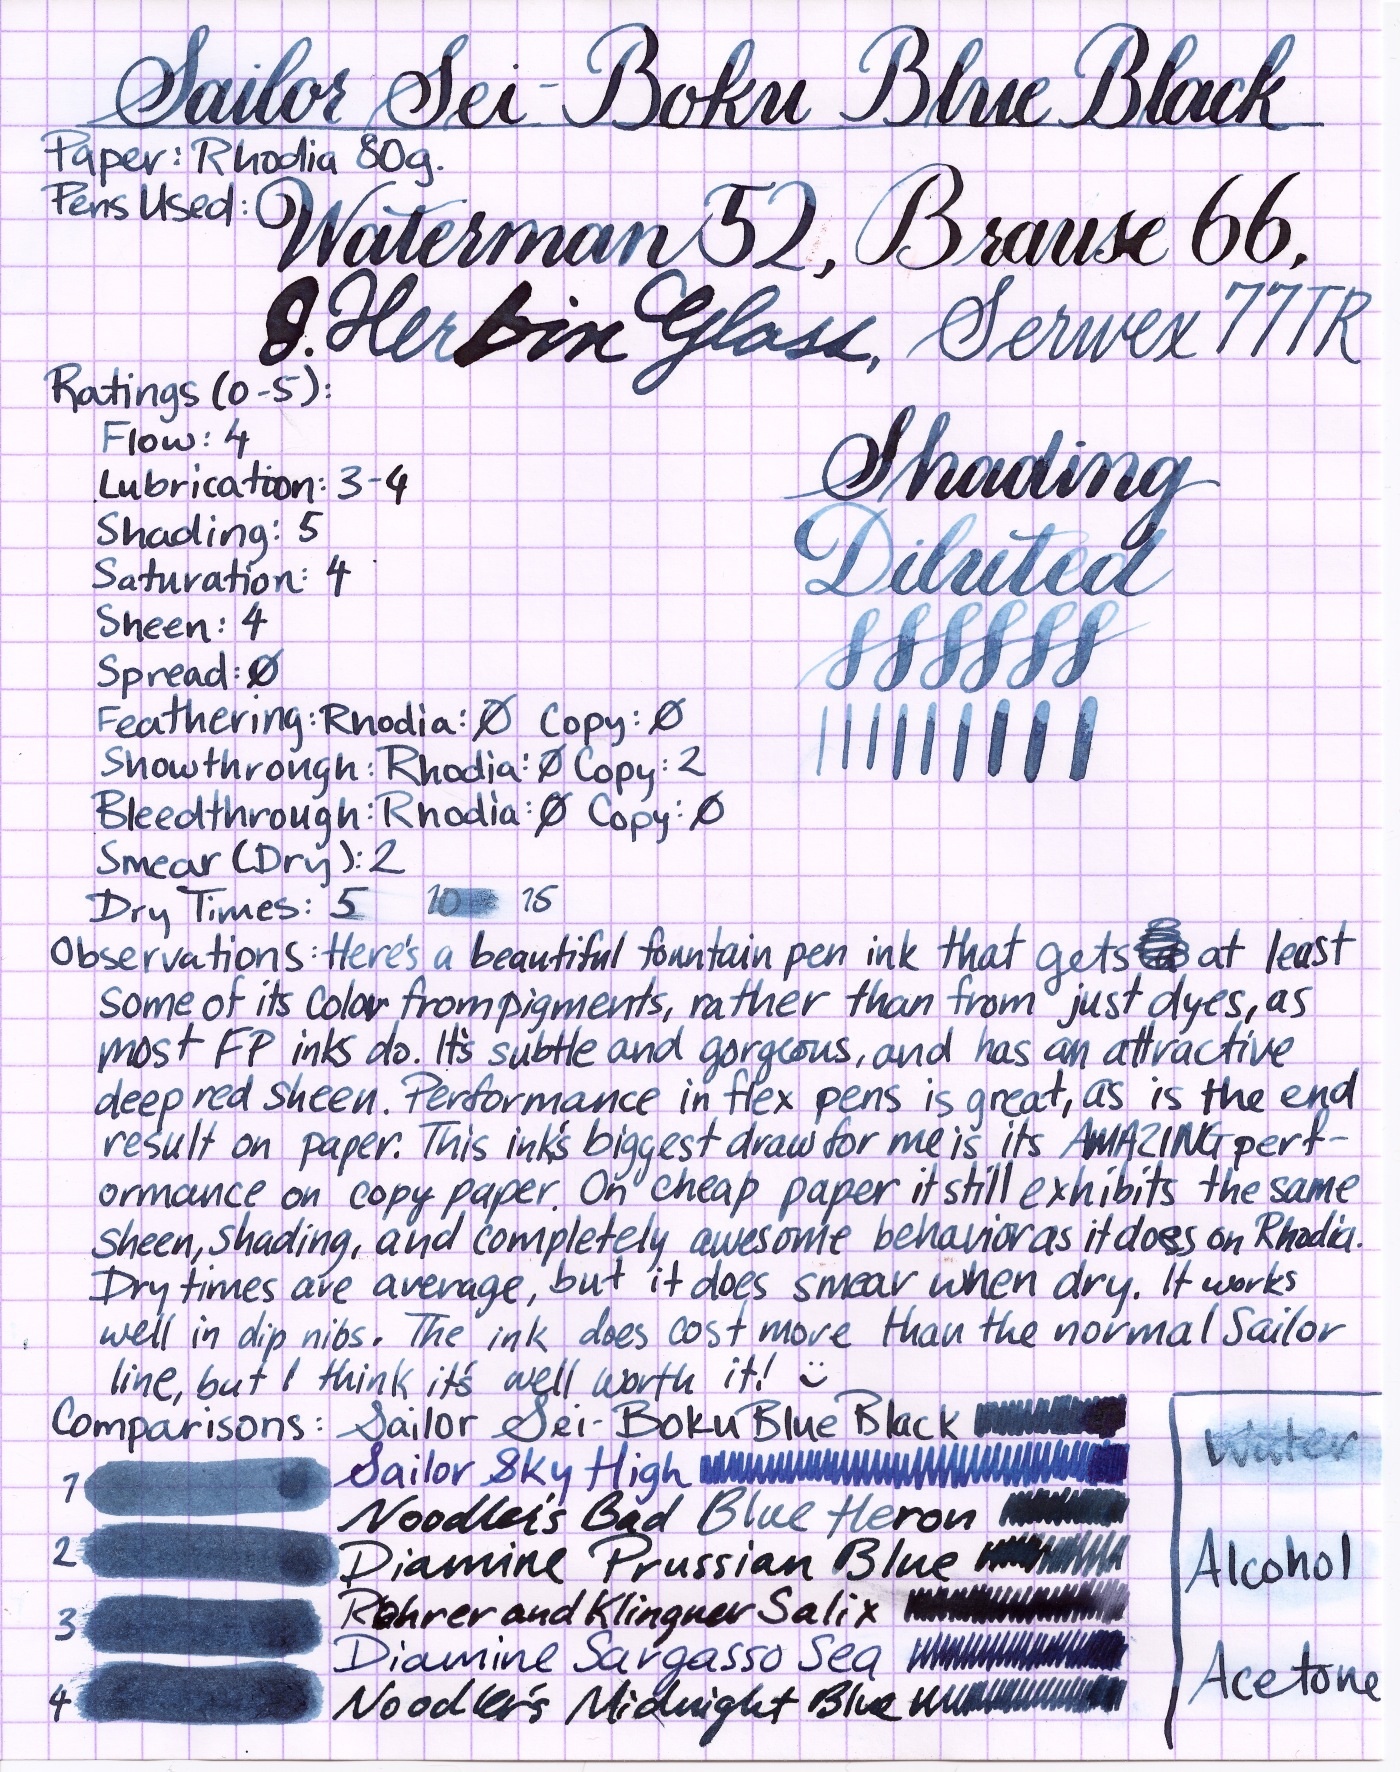 Sailor Sei-Boku Blue Black
Paper: Rhodia 80g.
Pens Used: Waterman 52, Brause 66,
J. Herbin Glass, Serwex 77TR
Ratings (0-5):
Flow: 4
Lubrication: 3-4
Shading: 5
Saturation: 4
Sheen: 4
Spread: Ø
Feathering: Rhodia: Ø Copy: Ø
Showthrough: Rhodia: Ø Copy: 2
Bleedthrough: Rhodia: Ø Copy: Ø
Smear (Dry): 2
Dry Times: 5 10 15
Shading
Diluted
Observations: Here's a beautiful fountain pen ink that gets at least
some of its color from pigments, rather than from just dyes, as
most FP inks do. It's subtle and gorgeous, and has an attractive
deep red sheen. Performance in flex pens is great, as is the end
result on paper. This ink's biggest draw for me is its AMAZING perf-
ormance on copy paper. On cheap paper it still exhibits the same
sheen, shading, and completely awesome behavior as it does on Rhodia.
Dry times are average, but it does smear when dry. It works
well in dip nibs. The ink does cost more than the normal Sailor
line, but I think it's well worth it! :)
Comparisons: Sailor Sei-Boku Blue Black
Sailor Sky High
Noodler's Bad Blue Heron
Diamine Prussian Blue
Rohrer and Klingner Salix
Diamine Sargasso Sea
Noodler's Midnight Blue
1
2
3
4
Water
Alcohol
Acetone